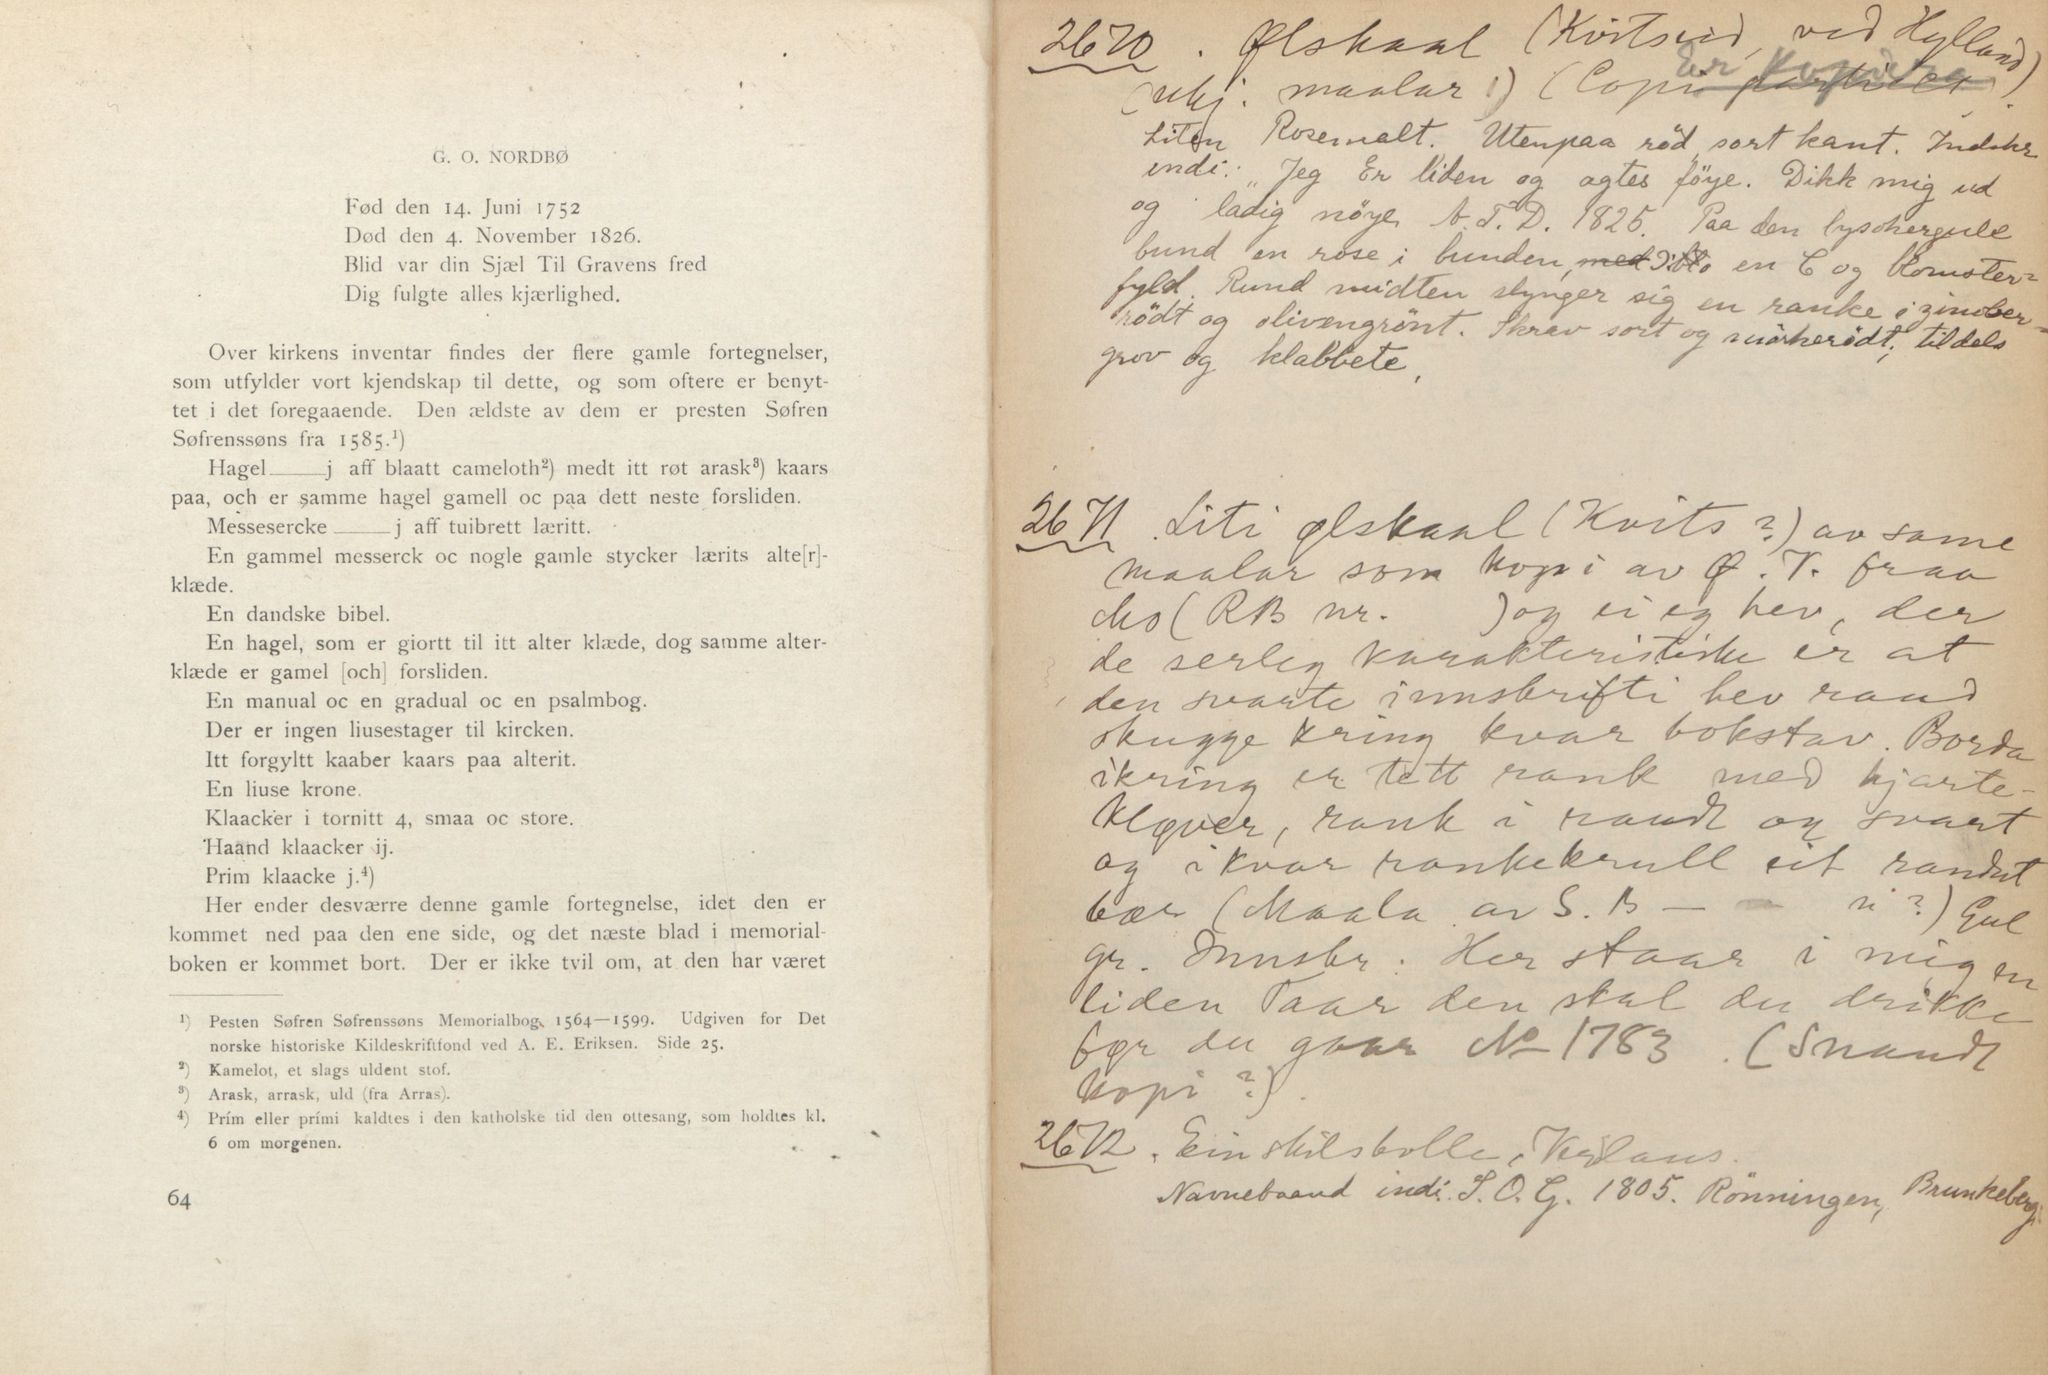 G. O. NORDBØ
Fød den 14. Juni 1752
Død den 4. November 1826.
Blid var din Sjæl Til Gravens fred
Dig fulgte alles kjærlighed.
Over kirkens inventar findes der flere gamle fortegnelser,
som utfylder vort kjendskap til dette, og som oftere er benyt-
tet i det foregaaende. Den ældste av dem er presten Søfren
Søfrenssøns fra 1585.¹)
Hagel ___ j aff blaatt cameloth²) medt itt røt arask³) kaars
paa, och er samme hagel gamell oc paa dett neste forsliden.
Messesercke ___ j aff tuibrett læritt.
En gammel messerck oc nogle gamle stycker lærits alte[r]-
klæde.
En dandske bibel.
En hagel, som er giortt til itt alter klæde, dog samme alter-
klæde er gamel [och] forsliden.
En manual oc en gradual oc en psalmbog.
Der er ingen liusestager til kircken.
Itt forgyltt kaaber kaars paa alterit.
En liuse krone.
Klaacker i tornitt 4, smaa oc store.
Haand klaacker ij.
Prim klaacke j.⁴)
Her ender desværre denne gamle fortegnelse, idet den er
kommet ned paa den ene side, og det næste blad i memorial-
boken er kommet bort. Der er ikke tvil om, at den har været
¹) Pesten Søfren Søfrenssøns Memorialbog 1564—1599. Udgiven for Det
norske historiske Kildeskriftfond ved A. E. Eriksen. Side 25.
²) Kamelot, et slags uldent stof.
³) Arask, arrask, uld (fra Arras).
⁴) Prím eller prími kaldtes i den katholske tid den ottesang, som holdtes kl.
6 om morgenen.
64
2670. Ølskaal (Kvitseid, ved Hylland)
Er kopiera
(ukj. maalar 1) (Copi
Liten Rosemalt. Utenpaa rød, sort kant.
indi: "Jeg Er liden og agtes föye. Dikk mig ud
og ladig nöye. A.T.D. 1825. Paa den lysokergule
bund en rose i bunden, en C og blomster-
fyld. Rund midten slynger sig en ranke i zinober-
rödt og olivengrönt. Skrev sort og mörkerödt, tildels
grov og klabbete.
2671. Liti ølskaal (Kvits?) av same
maalar som kopi av Ø. V. fraa
Mo (RB nr. ) og ei eg hev, der
de serleg karakteristiske er at
den svarte innskrifti hev raud
skugge kring kvar bokstav. Borda
ikring er tett rank med hjarte-
kløver, rank i raudt og svart
og i kvar rankekrull eit raudt
bær (Maala av S. B — — n?) Gul
gr. Innskr. Her staar i mig en
liden Taar den skal du drikke
før du gaar No 1783. (Snaudt
kopi?).
2672. Ein skilsbolle,
Navnebaand indi. S. O. G. 1805. Rönningen, Brunkeberg.